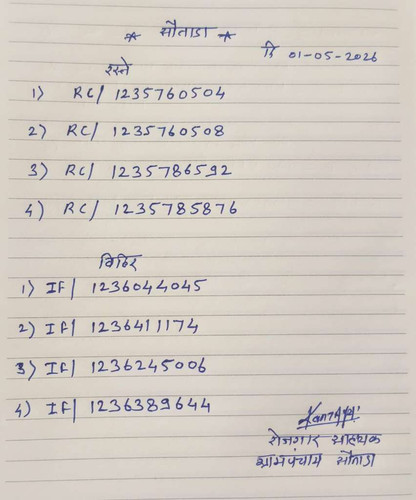 * सौताडा *
दि 01-05-2026
रस्ते
1) RC/ 1235760504
2) RC/ 1235760508
3) RC/ 1235786592
4) RC/ 1235785876
विहिर
1) IF/ 1236044045
2) IF/ 1236411174
3) IF/ 1236245006
4) IF/ 1236389644
रोजगार साहयक
ग्रामपंचाय सौताडा